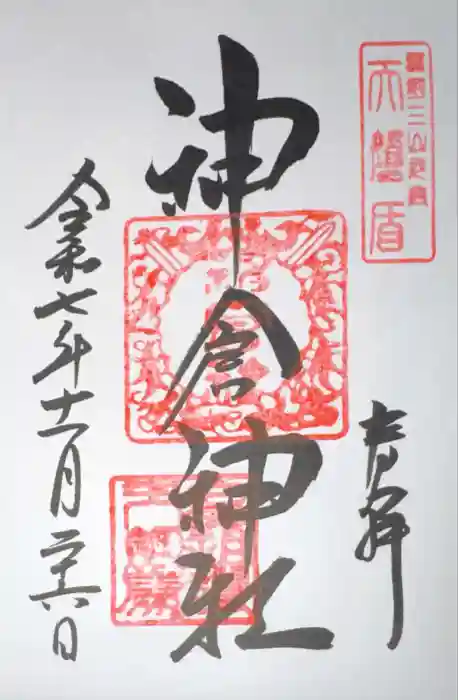 熊野三山
天磐盾
奉拝
神倉神社
令和七年十一月二十六日